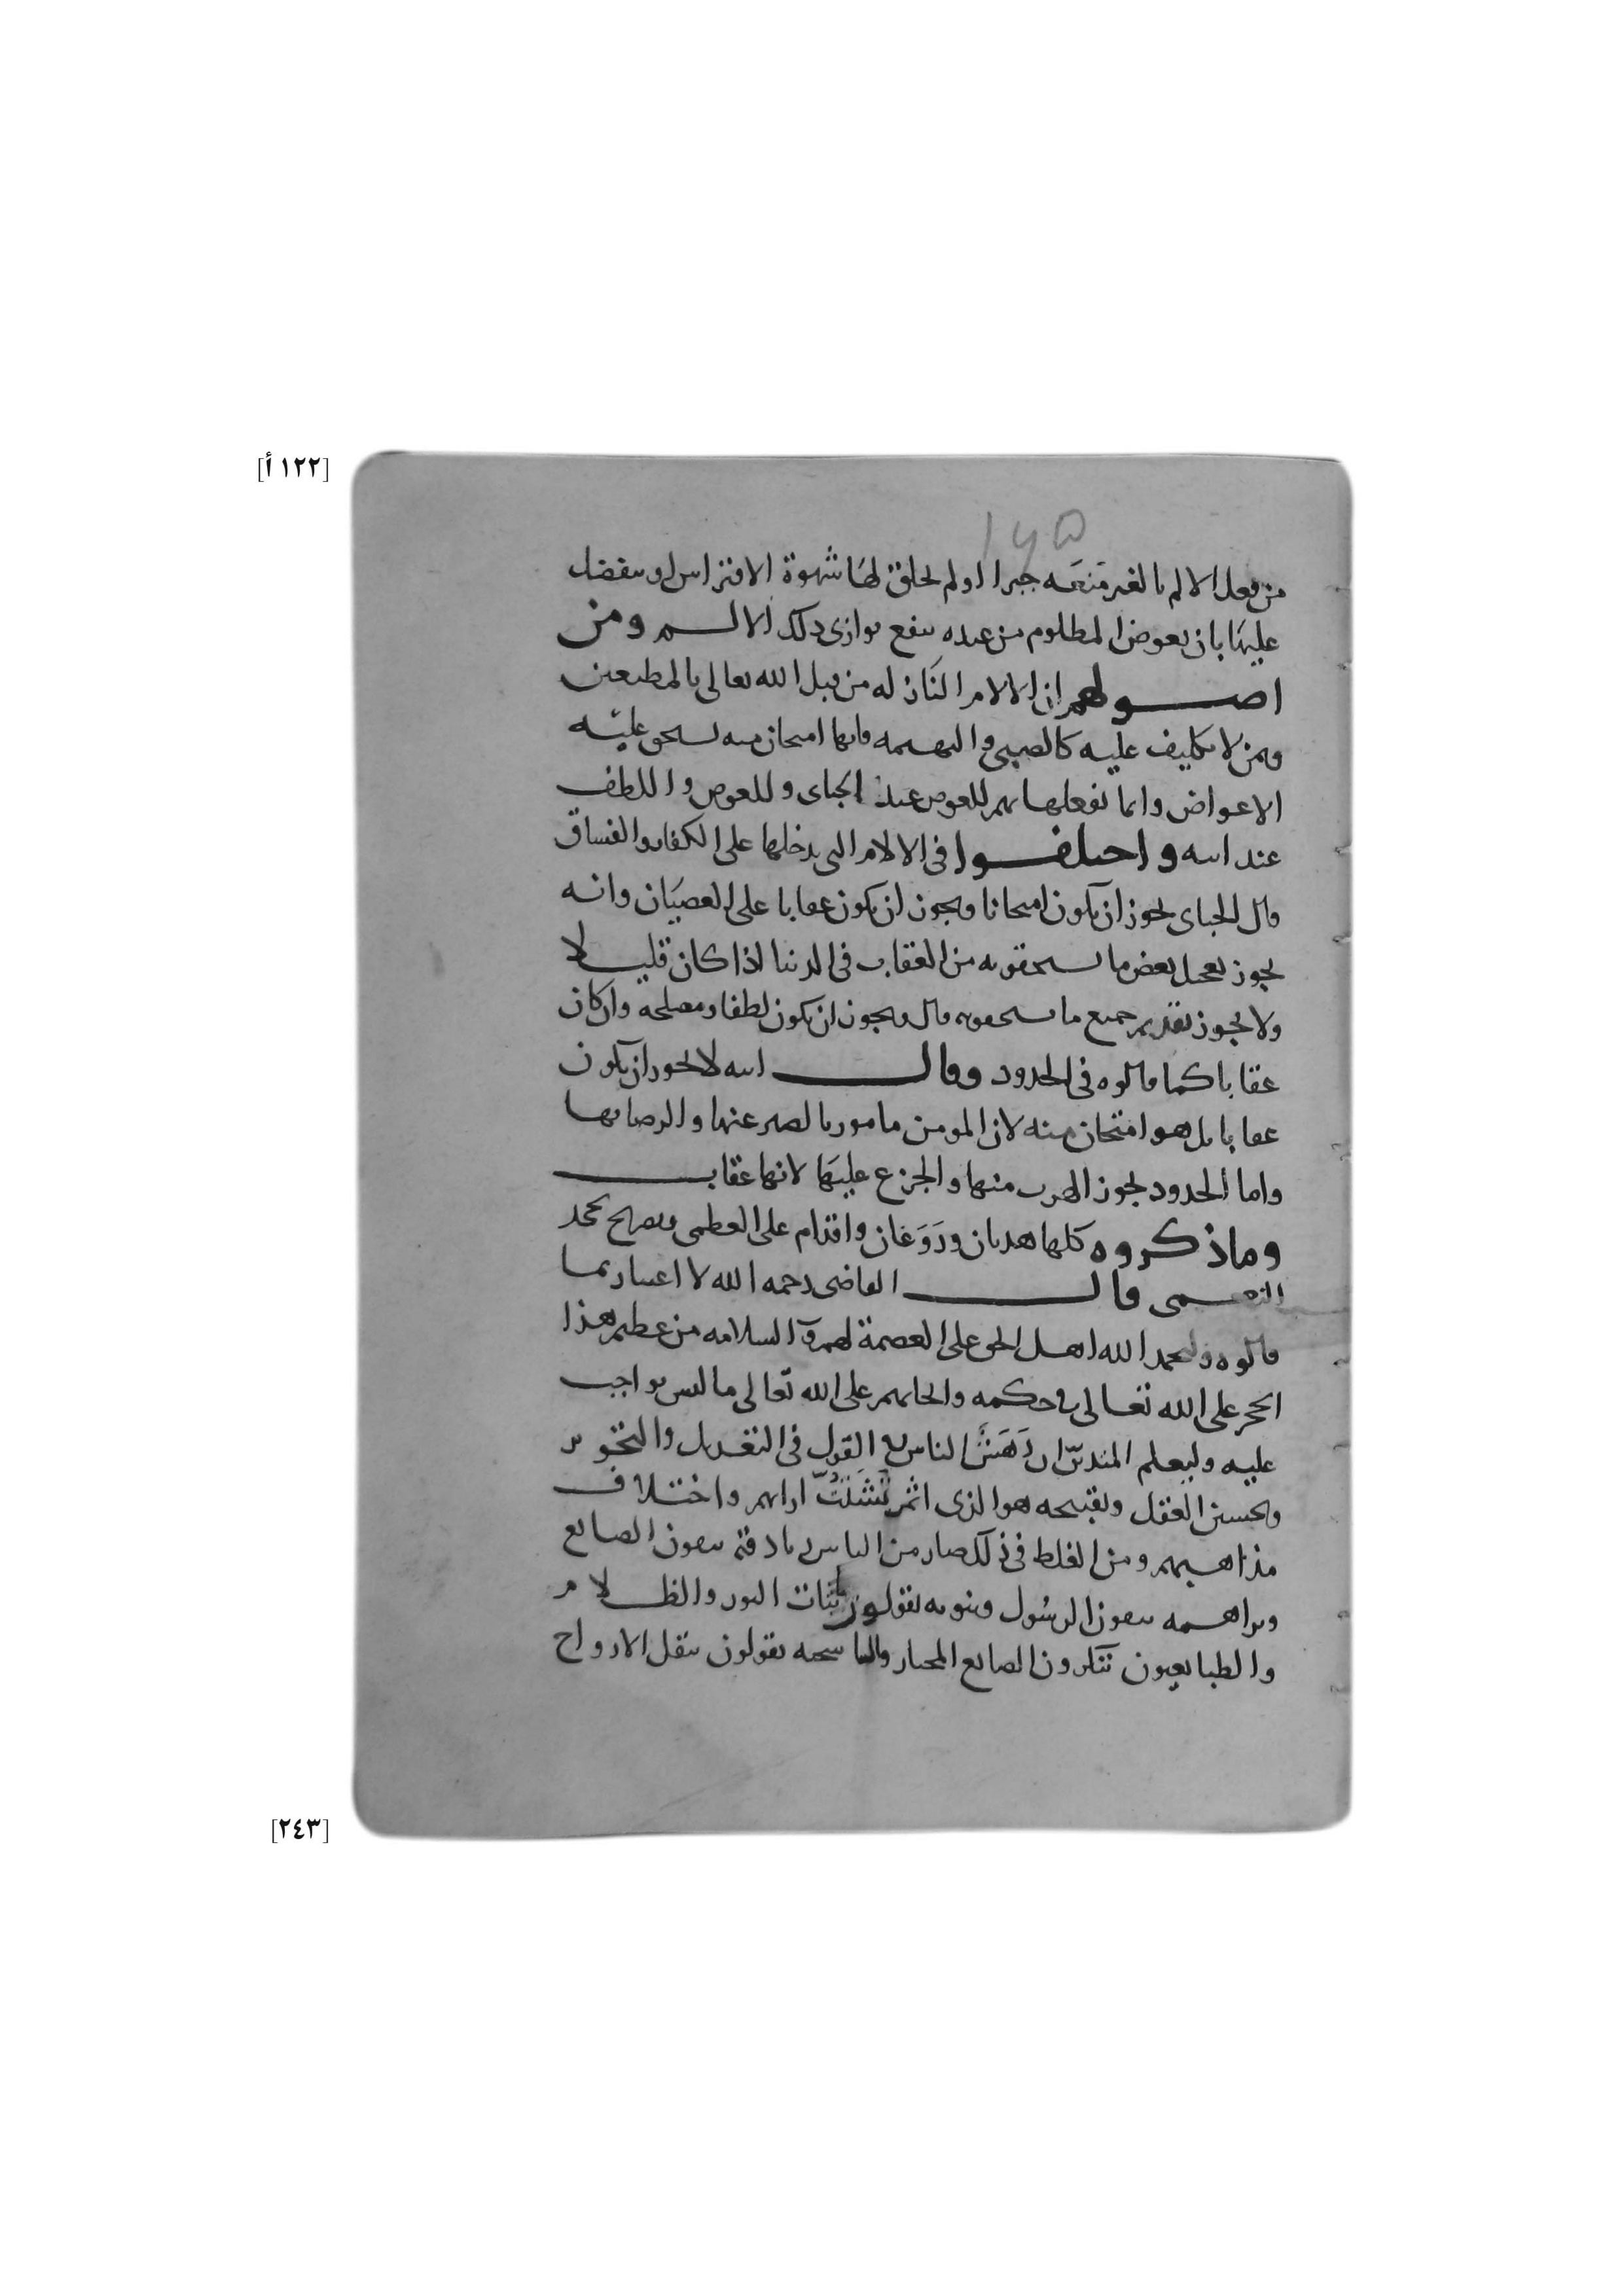 [١٢٢ أ]
١٢٥
من فعل الالم بالغير منعه جبرا او لم يخلق لها شهوة الافتراس او يتفضل
عليها بان يعوض المطلوم من عنده بنفع يوازي ذلك الالم ومن
اصولهم ان الالام النازله من قبل الله تعالى بالمطيعين
وبمن لا تكليف عليه كالصبي والبهيمه فانها امتحان منه يستحق عليه
الاعواض وانما يفعلها بهم للعوض عند الجباي وللعوض واللطف
عند ابنه واختلفوا في الالام التي يدخلها على الكفار والفساق
قال الجباي يجوز ان يكون امتحانا ويجوز ان يكون عقابا على العصيان وانه
يجوز تعجيل بعض ما يستحقونه من العقاب في الدنيا اذا كان قليلا
ولا يجوز تقديم جميع ما يستحقونه قال ويجوز ان يكون لطفا ومصلحه وان كان
عقابا كما قالوه في الحدود وقال ابنه لا يجوز ان يكون
عقابا بل هو امتحان منه لان المومن مامور بالصبر عنها والرضا بها
واما الحدود يجوز الهرب منها والجزع عليها لانها عقاب
وماذكروه كلها هذيان وروغان واقدام على العظمى وتصريح بجحد
النعمى قال القاضي رحمه الله لا اعتبار بما
قالوه وليحمد الله اهل الحق على العصمة لهم والسلامه من عظيم هذا
الحجر على الله تعالى في حكمه والحابهم على الله تعالى ما ليس بواجب
عليه وليعلم المتدين ان دهش الناس في القول في التعديل والتجوير
وتحسين العقل وتقبيحه هو الذي اثمر تشتت ارايهم واختلاف
مذاهبهم ومن الغلط في ذلك صار من الناس زنادقة ينفون الصانع
وبراهمه ينفون الرسول وثنويه يقولون باثبات النور والظلام
والطبايعيون ينكرون الصانع المختار والتناسخيه يقولون بنقل الارواح
[٢٤٣]